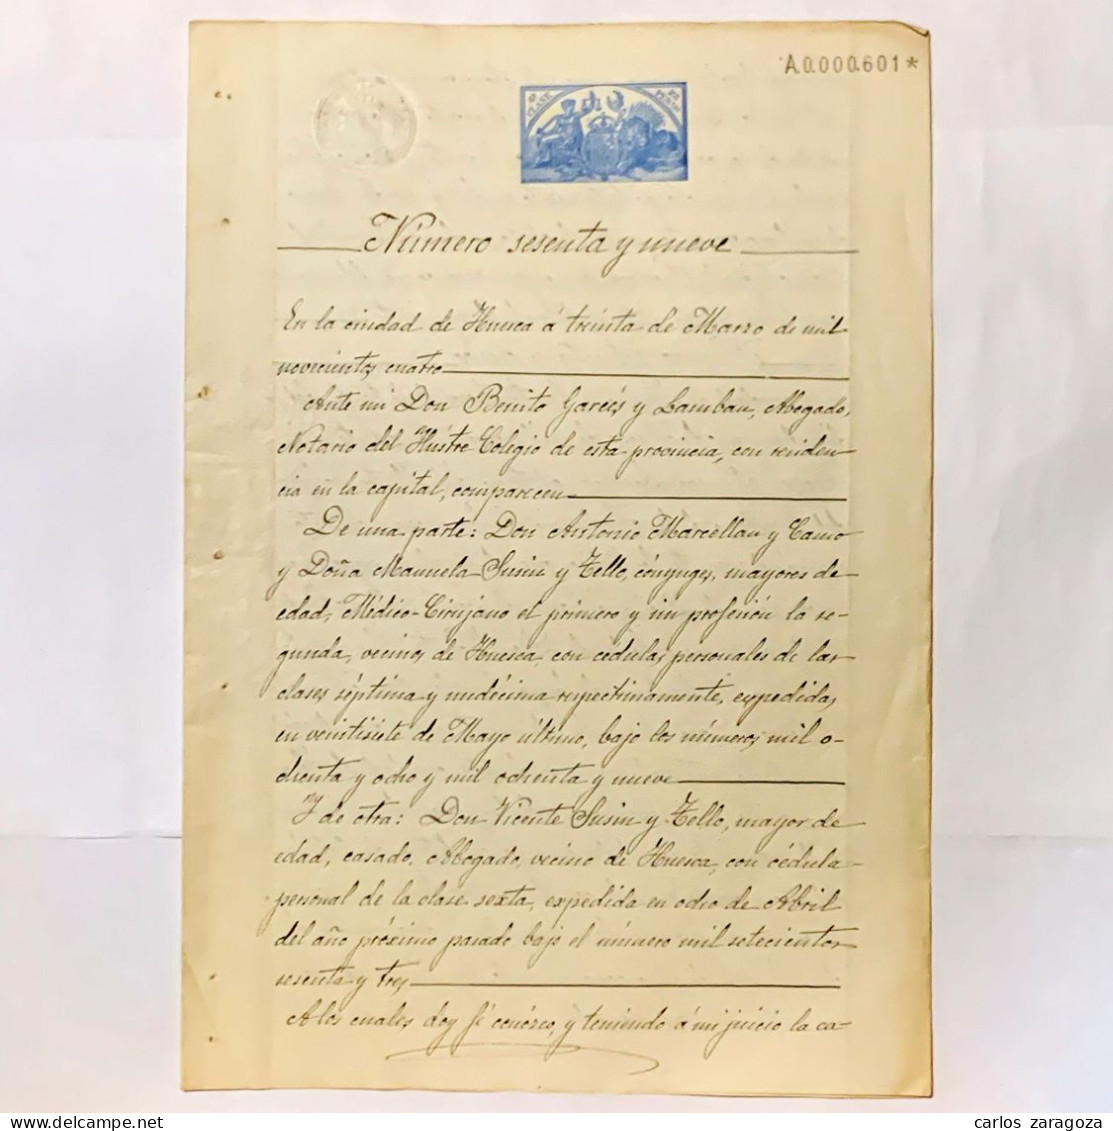 A.0.000.601*
CLASE
Número sesenta y nueve
En la ciudad de Huesca á treinta de Marzo de mil
novecientos cuatro
Ante mi Don Benito Garcés y Lambán, Abogado,
Notario del Ilustre Colegio de esta provincia, con residen
cia en la capital, comparecen
De una parte: Don Antonio Marcellan y Camo
y Doña Manuela Susin y Tello, cónyuges, mayores de
edad, Médico-Cirujano el primero y sin profesión la se-
gunda, vecinos de Huesca, con cédulas personales de las
clases séptima y undécima respectivamente, expedidas
en veintisiete de Mayo último, bajo los números mil o-
chenta y ocho y mil ochenta y nueve
Y de otra: Don Vicente Susin y Tello, mayor de
edad, casado, Abogado, vecino de Huesca, con cédula
personal de la clase sexta, expedida en ocho de Abril
del año próximo pasado bajo el número mil setecientos
sesenta y tres
A los cuales doy fé conozco, y teniendo á mi juicio la ca-
carlos zaragoza